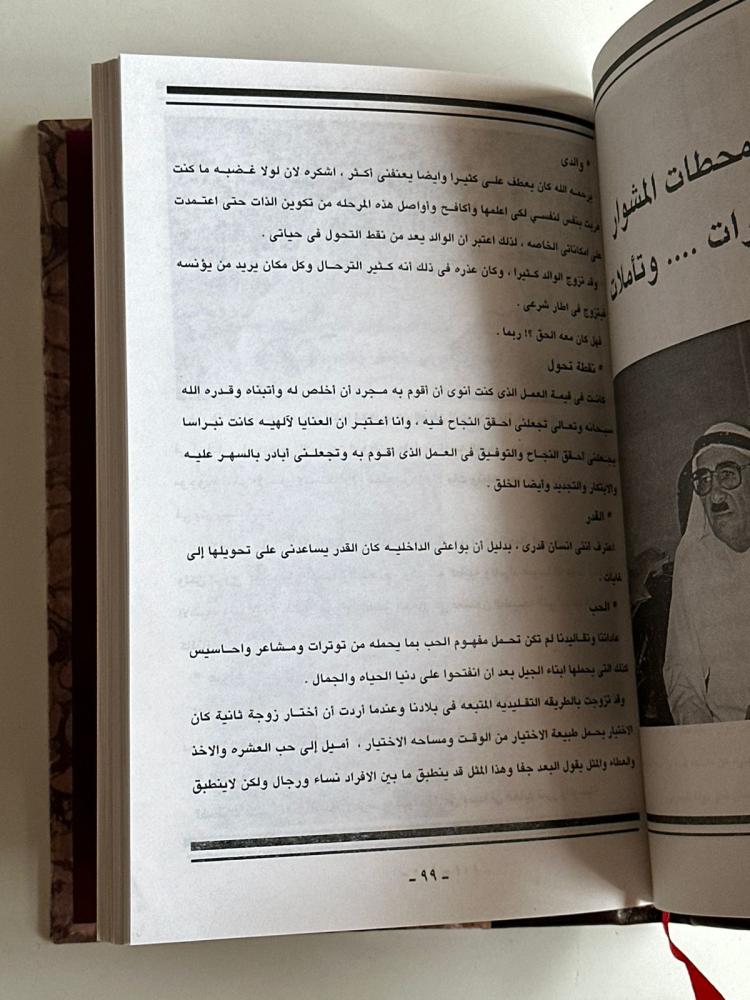 * والدى
يرحمه الله كان يعطف على كثيرا وايضا يعنفنى أكثر ، اشكره لان لولا غضبه ما كنت
هربت بنفس لنفسي لكى اعلمها وأكافح وأواصل هذه المرحله من تكوين الذات حتى اعتمدت
على امكاناتى الخاصه ، لذلك اعتبر ان الوالد يعد من نقط التحول فى حياتى .
وقد تزوج الوالد كثيرا ، وكان عذره فى ذلك أنه كثير الترحال وكل مكان يريد من يؤنسه
فيتزوج فى اطار شرعى .
فهل كان معه الحق ؟! ربما .
* نقطة تحول
كانت فى قيمة العمل الذى كنت أنوى أن أقوم به مجرد أن أخلص له وأتبناه وقدره الله
سبحانه وتعالى تجعلنى أحقق النجاح فيه ، وانا أعتبر ان العنايا لآلهيه كانت نبراسا
يجعلنى أحقق النجاح والتوفيق فى العمل الذى أقوم به وتجعلنى أبادر بالسهر عليه
والابتكار والتجديد وأيضا الخلق .
* القدر
اعترف أننى انسان قدرى ، بدليل أن بواعثى الداخليه كان القدر يساعدنى على تحويلها إلى
غايات .
* الحب
عاداتنا وتقاليدنا لم تكن تحمل مفهوم الحب بما يحمله من توترات ومشاعر واحاسيس
كتلك التى يحملها ابناء الجيل بعد ان انفتحوا على دنيا الحياه والجمال .
وقد تزوجت بالطريقه التقليديه المتبعه فى بلادنا وعندما أردت أن أختار زوجة ثانية كان
الاختيار يحمل طبيعة الاختيار من الوقت ومساحه الاختيار ، أميل إلى حب العشره والاخذ
والعطاء والمثل يقول البعد جفا وهذا المثل قد ينطبق ما بين الافراد نساء ورجال ولكن لاينطبق
ـ ٩٩ ـ
محطات المشوار
.... وتأملات